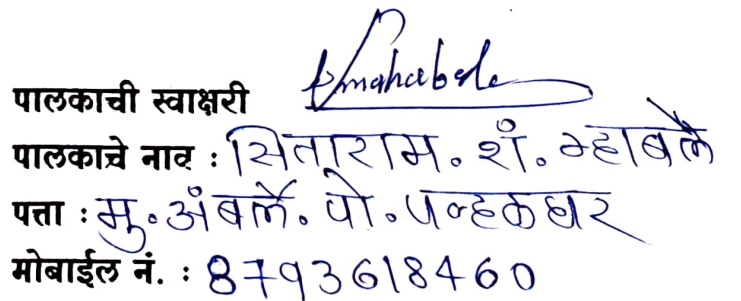 पालकाची स्वाक्षरी Smahabale
पालकाचे नाव : सिताराम. शं. म्हाबळे
पत्ता : मु. अंबर्ले. पो. पन्हळघर
मोबाईल नं. : 8793618460